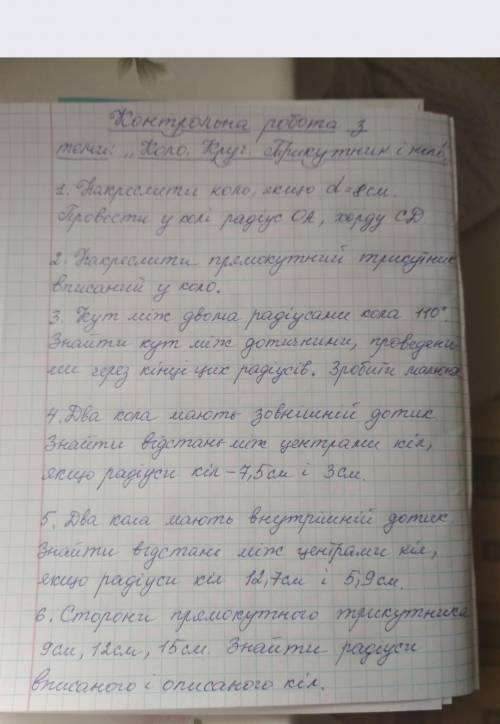 Контрольна робота з
теми: „Коло. Круг. Трикутник і коло".
1. Накреслити коло, якщо d=8см.
Провести у колі радіус ОА, хорду СD
2. Накреслити прямокутний трикутник
вписаний у коло.
3. Кут між двома радіусами кола 110°.
Знайти кут між дотичними, проведени-
ми через кінці цих радіусів. Зробити малюнок
4. Два кола мають зовнішній дотик
Знайти відстань між центрами кіл,
якщо радіуси кіл - 7,5см і 3см.
5. Два кола мають внутрішній дотик.
Знайти відстань між центрами кіл,
якщо радіуси кіл 12,7см і 5,9см.
6. Сторони прямокутного трикутника
9см, 12см, 15см. Знайти радіуси
вписаного і описаного кіл.